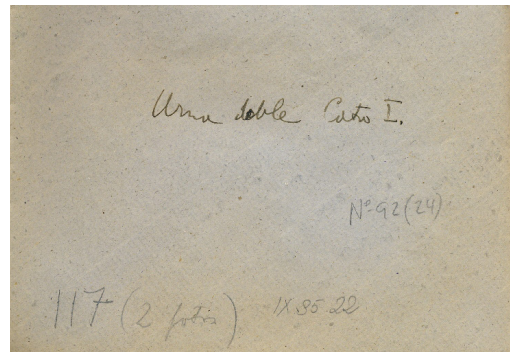 Urna doble I.
Nº-92(24)
117 (2 fotos) IX.95.22